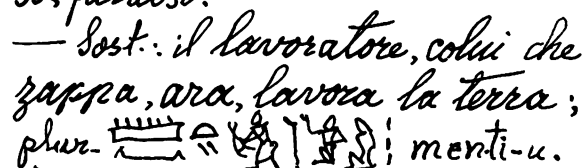 — Sost.: il lavoratore, colui che
zappa, ara, lavora la terra;
plur- menti-u.